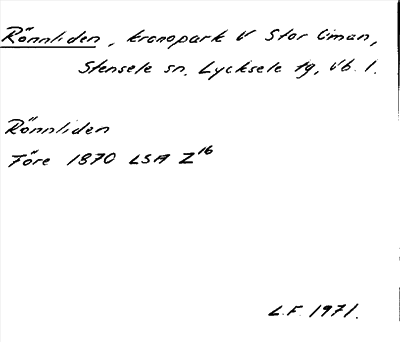 Rönnliden, kronopark V Stor Uman,
Stensele sn, Lycksele tg, Vb. l.
Rönnliden
Före 1870 LSA Z16
L.F. 1971.